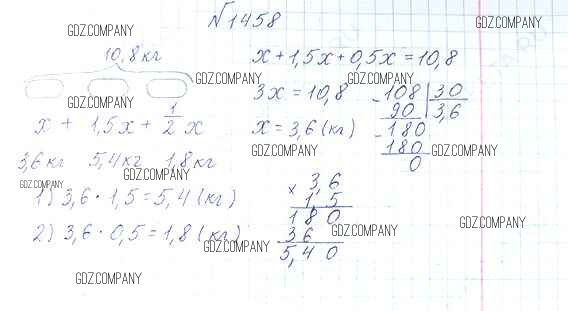 №1458
GDZ.COMPANY GDZ.COMPANY
10,8 кг
x + 1,5x + 0,5x = 10,8
GDZ.COMPANY GDZ.COMPANY
3x = 10,8
- 108 | 30
90 3,6
GDZ.COMPANY GDZ.COMPANY
x + 1,5x + 1/2 x
x = 3,6 (кг)
- 180
180
0
3,6 кг 5,4 кг 1,8 кг
GDZ.COMPANY GDZ.COMPANY
GDZ.COMPANY
1) 3,6 · 1,5 = 5,4 (кг)
2) 3,6 · 0,5 = 1,8 (кг)
× 3,6
1,5
180
36
5,40
GDZ.COMPANY GDZ.COMPANY
GDZ.COMPANY
GDZ.COMPANY